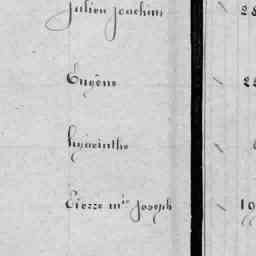 Julien Joachim 28
Eugène
hyacinthe
Pierre mie Joseph 19